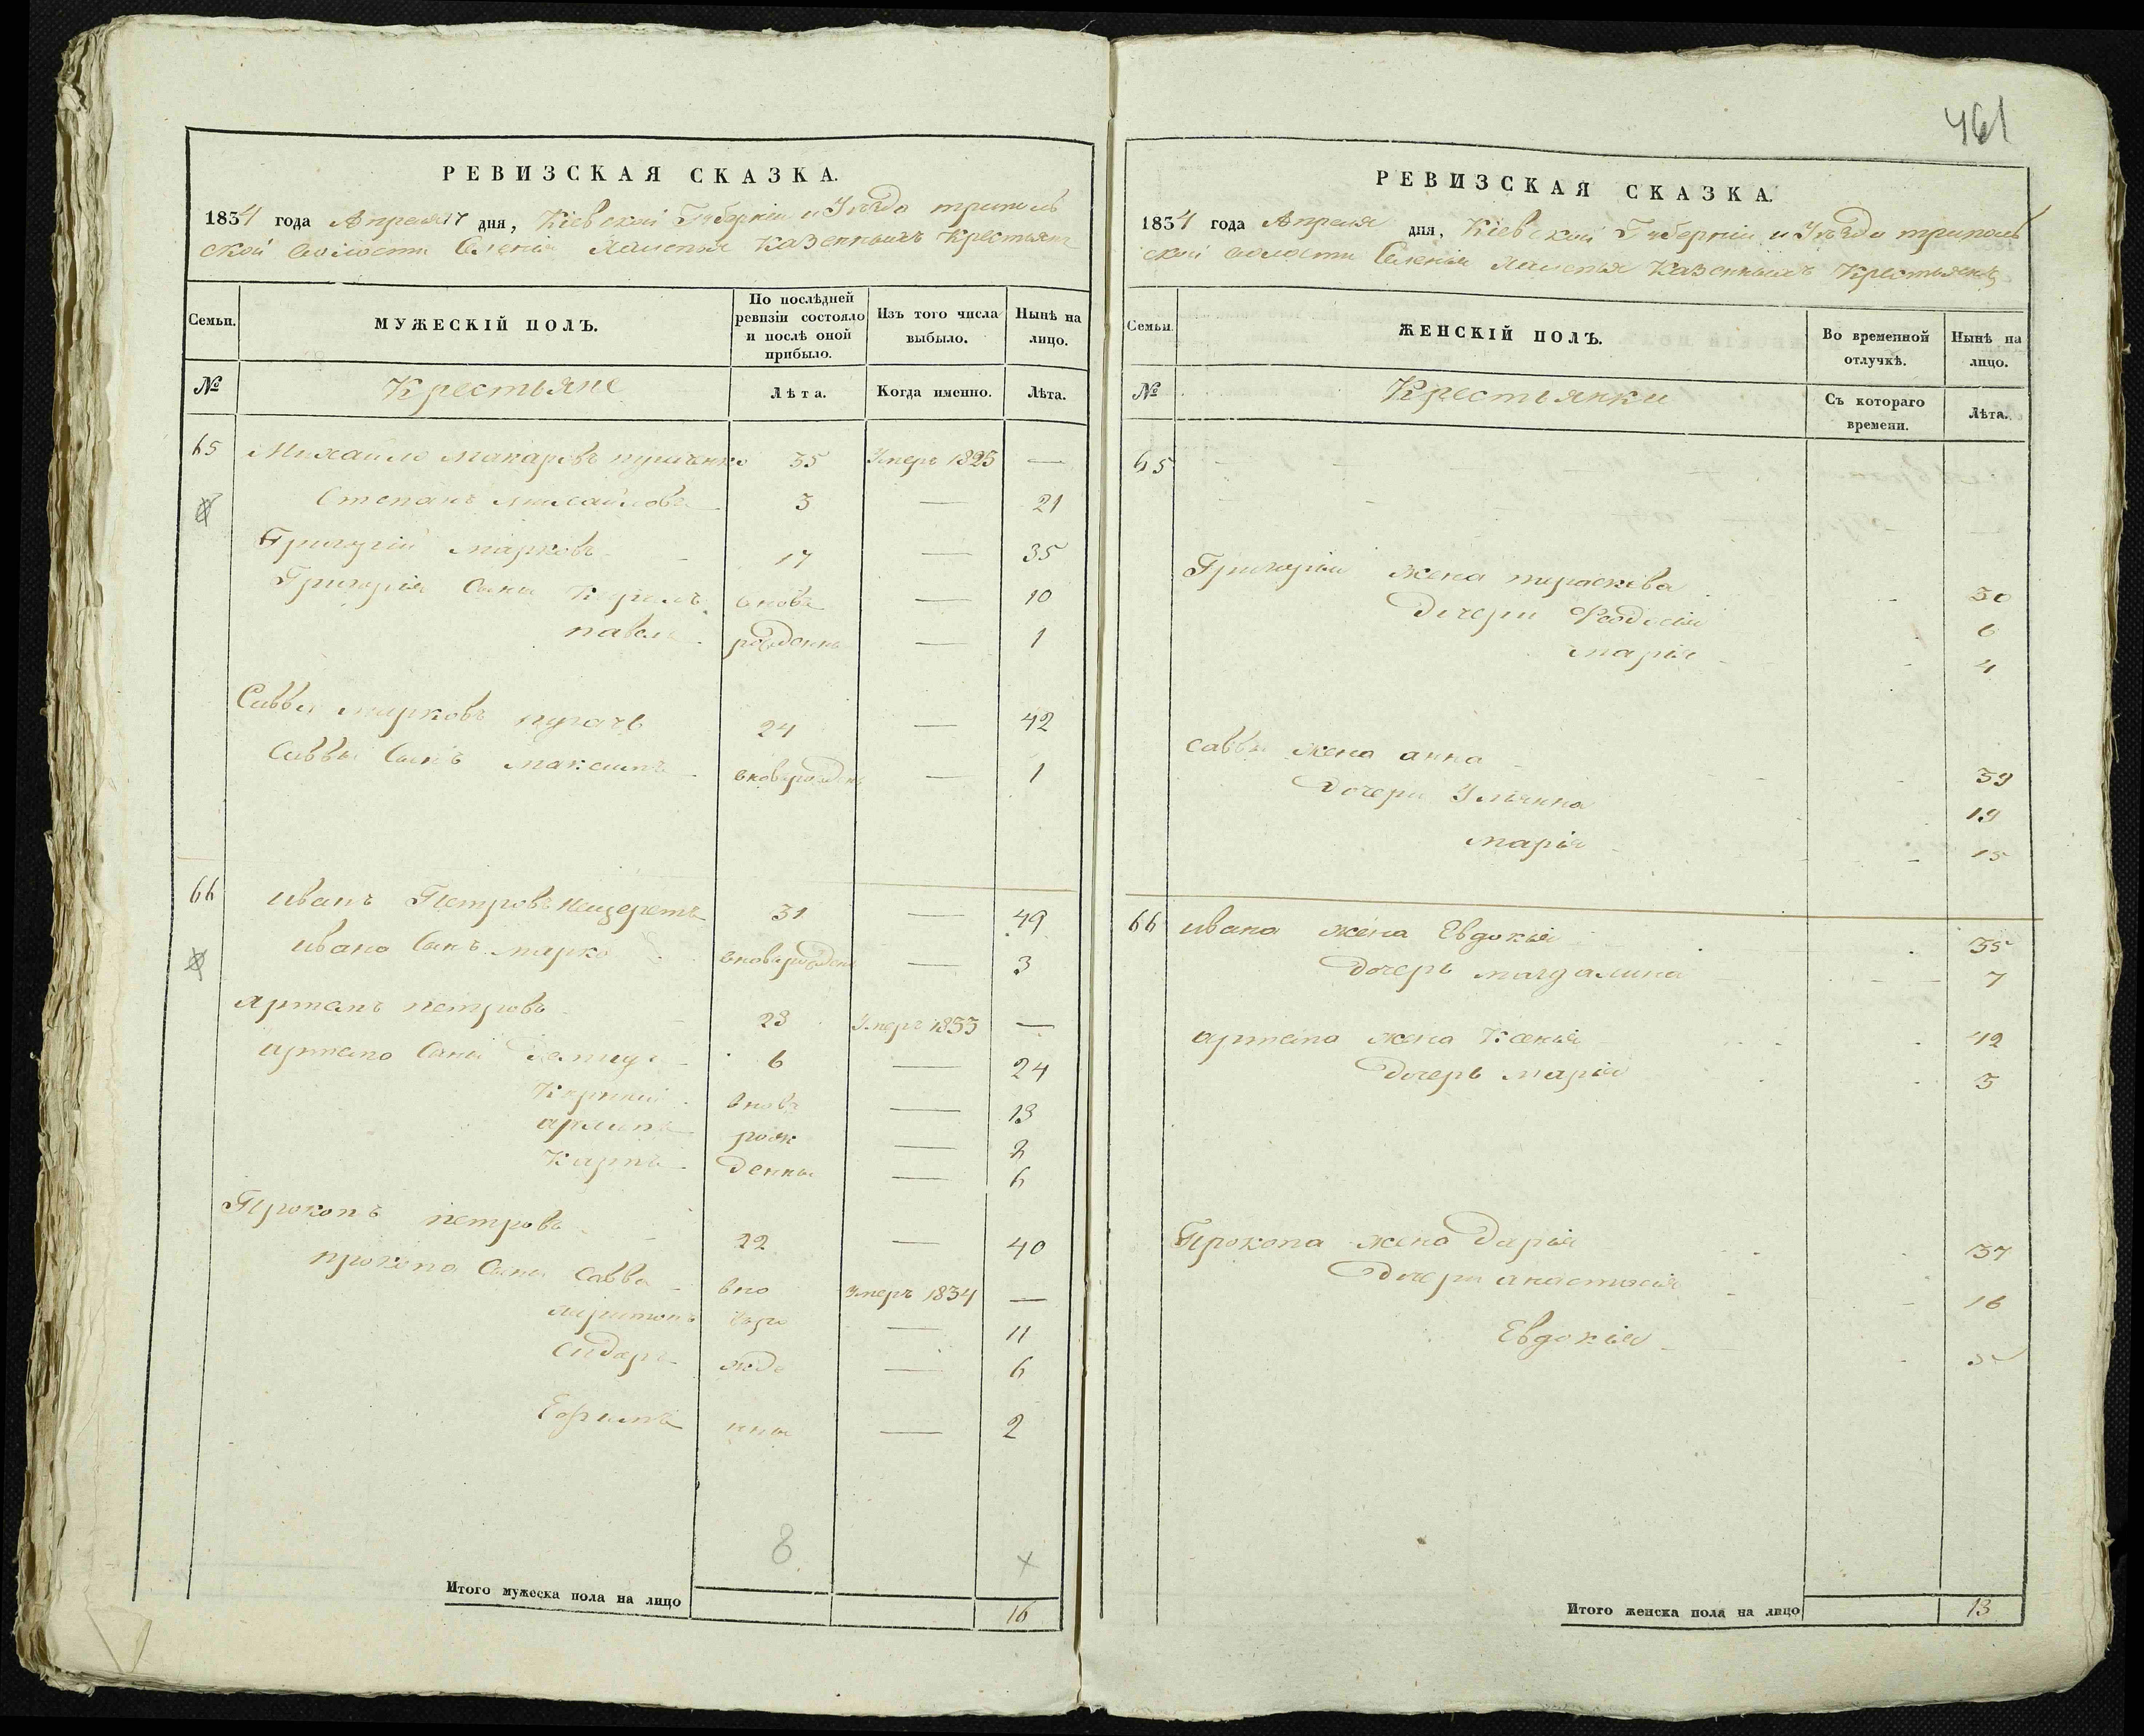 461
РЕВИЗСКАЯ СКАЗКА.
1834 года Апреля 17 дня, Кіевской Губерніи и Уезда триполь
ской волости Селенія Халепья Казенныхъ Крестьянъ
Семьи.
МУЖЕСКІЙ ПОЛЪ.
По послѣдней ревизіи состояло и послѣ оной прибыло.
Изъ того числа выбыло.
Нынѣ на лицо.
№
Крестьяне
Лѣта.
Когда именно.
Лѣта.
65 Михаило Макаровъ 35 Умеръ 1825 —
Степанъ Михайловъ 3 — 21
Григорій Марковъ 17 — 35
Григорія Сыны вновь — 10
павелъ рожденны — 1
Савва Марковъ пугачъ 24 — 42
Саввы Сынъ Максимъ вновьрожденъ — 1
66 Иванъ Петровъ 31 — 49
Ивана Сынъ Марко вновьрожденъ — 3
Артемъ петровъ 23 Умеръ 1833 —
Артема Сыны 6 — 24
вновь — 13
рож — 2
Карпъ денны — 6
Прокопъ петровъ 22 — 40
прокопа Сыны Савва вно Умеръ 1834 —
Харитонъ — 11
Сидоръ жде — 6
Ефимъ нны — 2
8
Итого мужеска пола на лицо 16
РЕВИЗСКАЯ СКАЗКА.
1834 года Апреля дня, Кіевской Губерніи и Уезда триполь
ской волости Селенія Халепья Казенныхъ Крестьянъ
Семьи.
ЖЕНСКІЙ ПОЛЪ.
Во временной отлучкѣ.
Нынѣ на лицо.
№
Крестьянки
Съ котораго времени.
Лѣта.
65
Григорія жена параскева 30
Дочери Феодосія 6
Марія 4
Саввы жена анна 39
Дочери Ульянна 19
Марія 15
66 Ивана жена Евдокія 35
Дочерь магдалина 7
Артема жена Ксенія 42
Дочерь Марія 3
Прокопа жена Дарья 37
Дочери анастасія 16
Евдокія 5
Итого женска пола на лицо 13